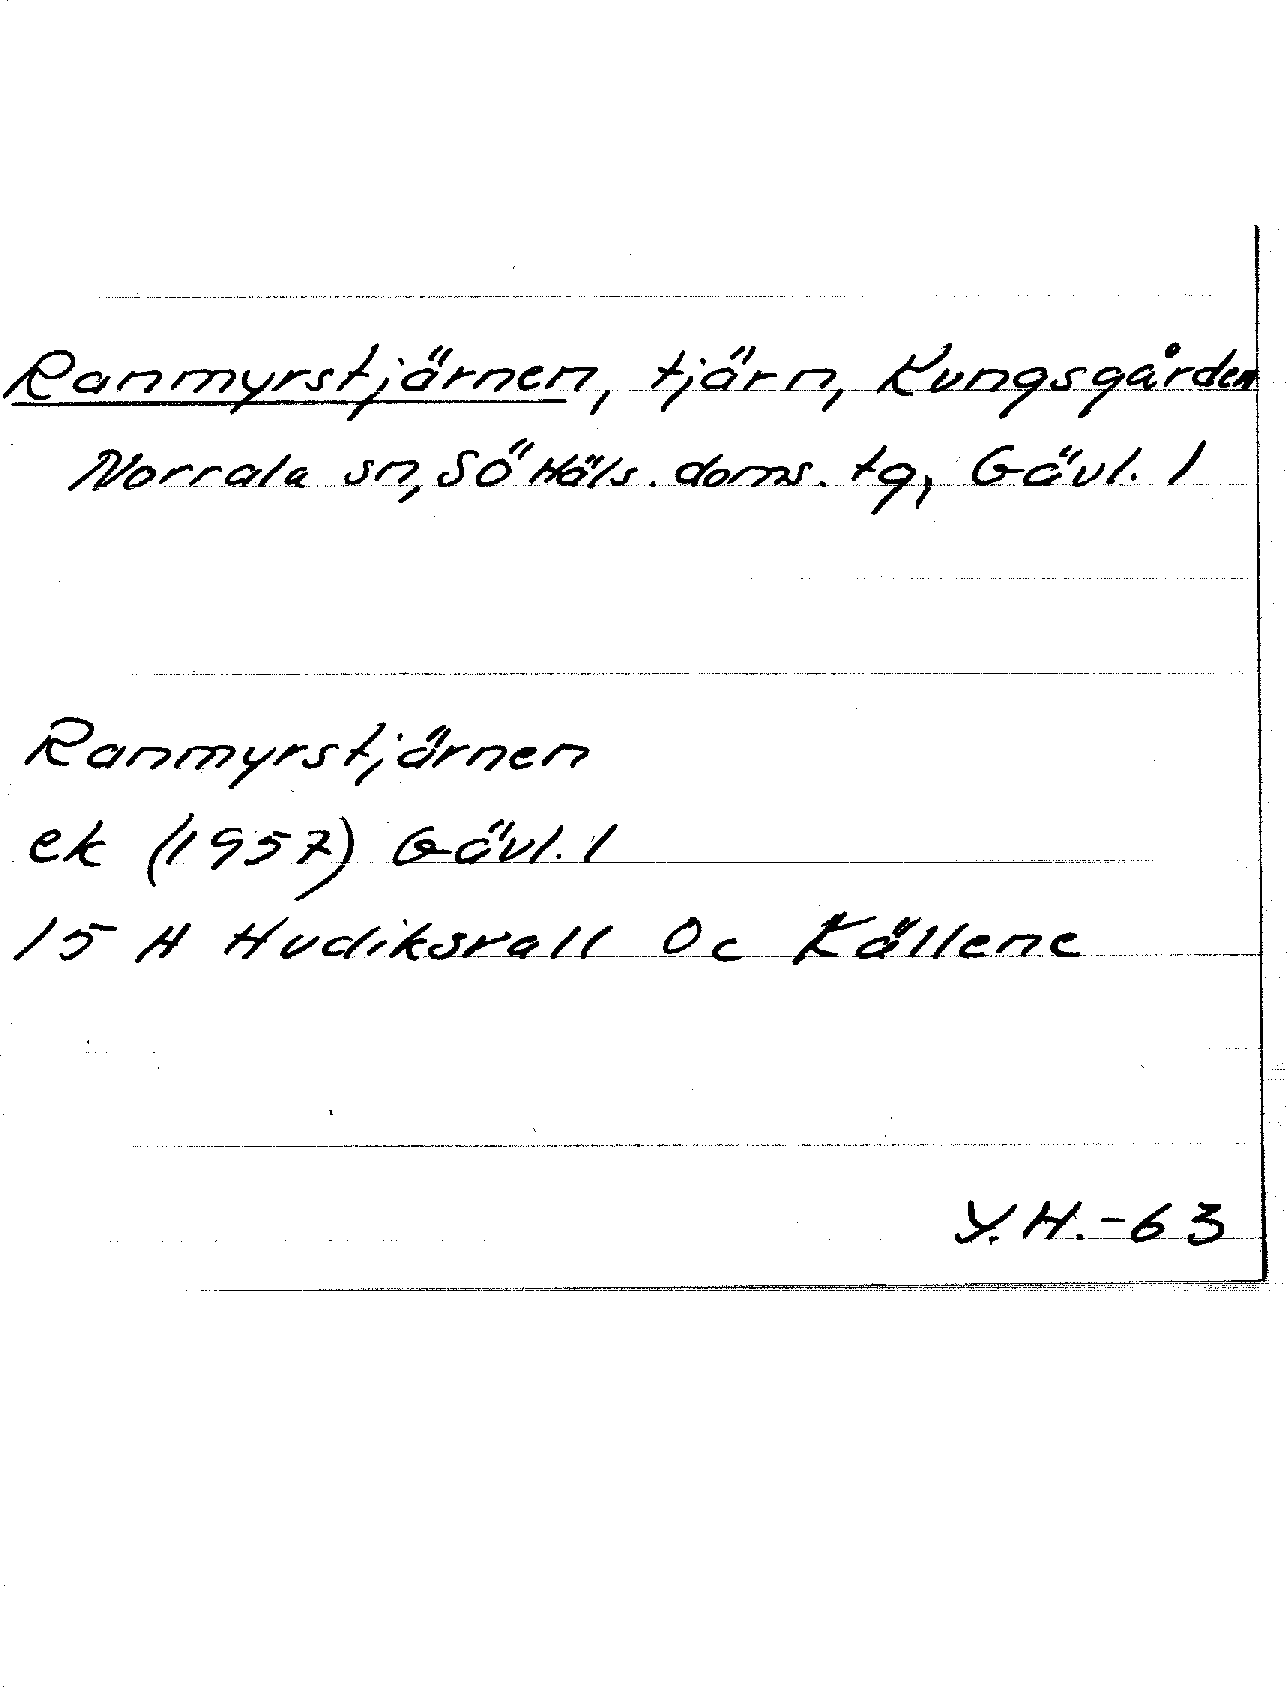 Ranmyrstjärnen, tjärn, Kungsgården
Norrala sn, Sö Häls. doms. tg, Gävl. l
Ranmyrstjärnen
ek (1957) Gävl. l
15 H Hudiksvall 0c Källene
Y.H.-63